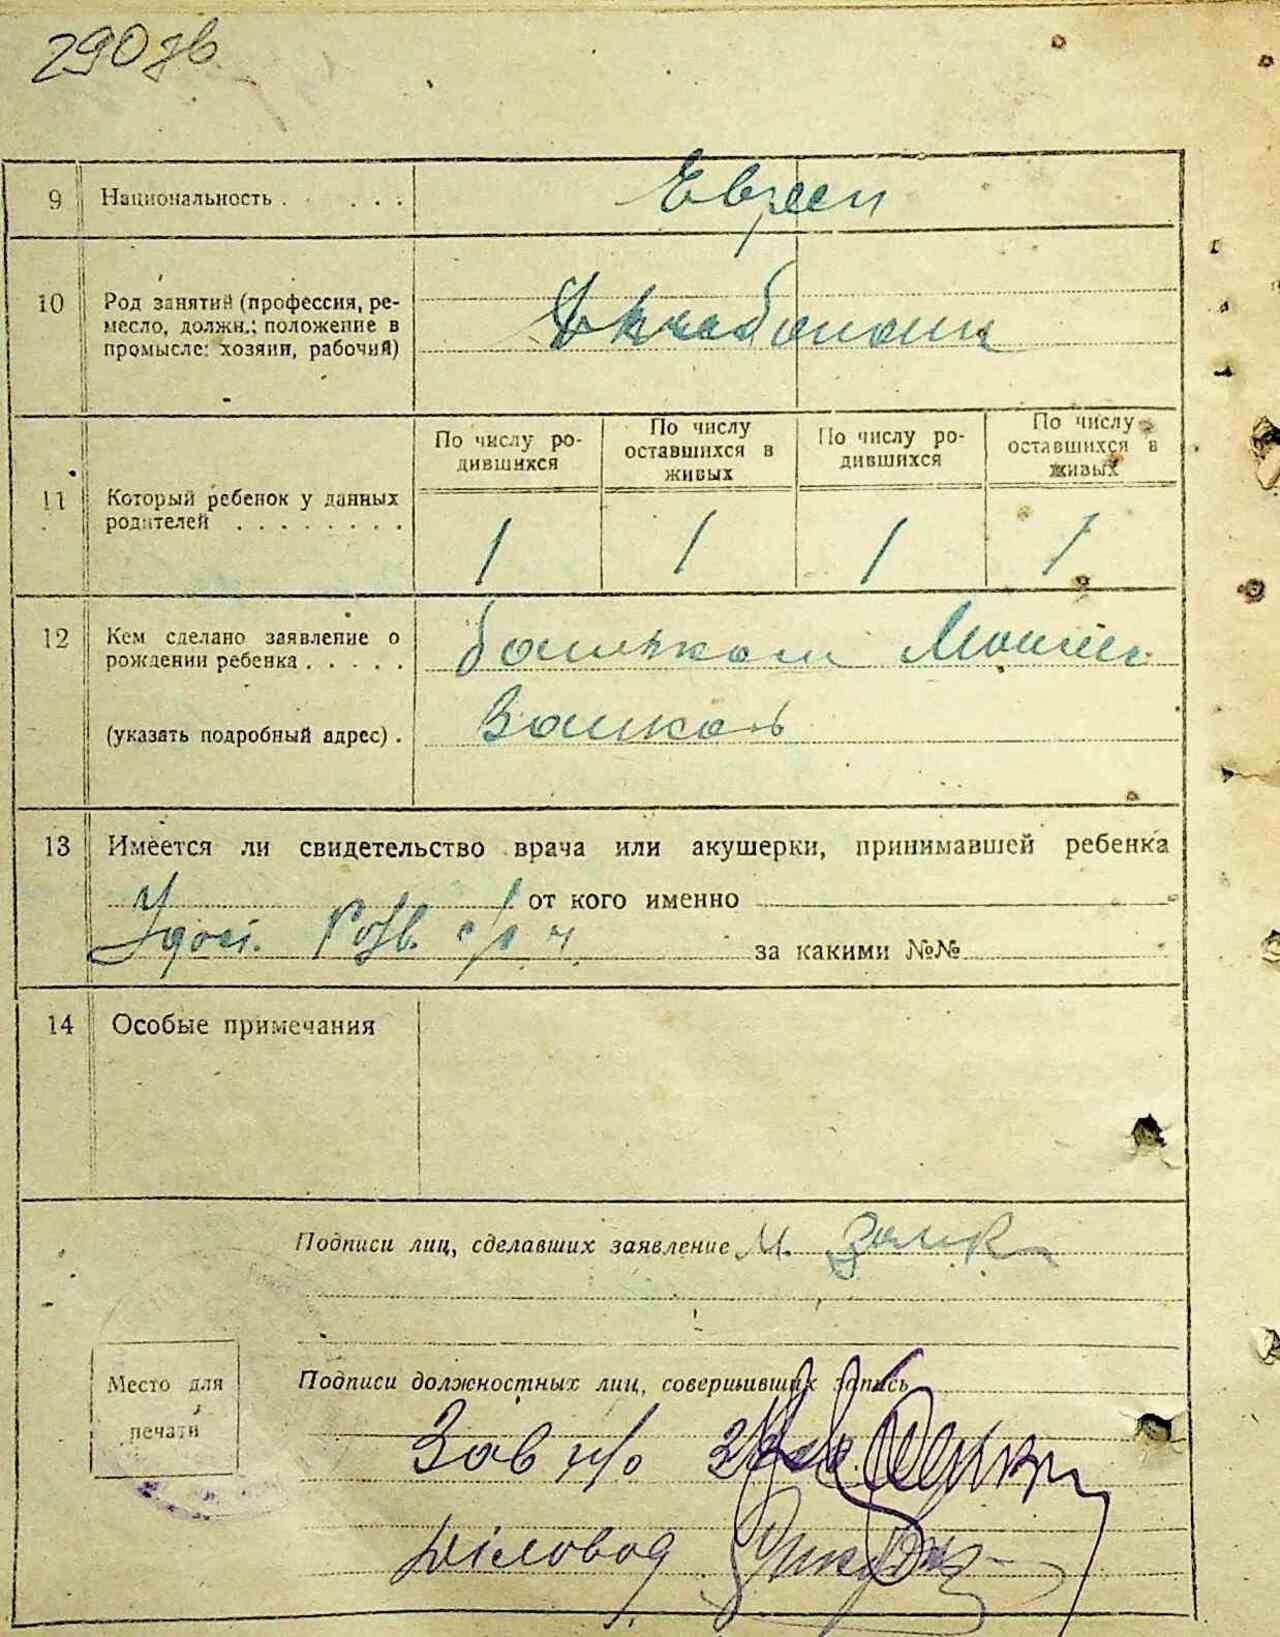 290 зв.
9 Национальность . . . . . Евреи
10 Род занятий (профессия, ре-
месло, должн.; положение в
промысле: хозяин, рабочий)
11 Который ребенок у данных
родителей . . . . . . . .
По числу ро-
дившихся
По числу
оставшихся в
живых
По числу ро-
дившихся
По числу
оставшихся в
живых
1 1 1 1
12 Кем сделано заявление о
рождении ребенка . . . . .
(указать подробный адрес) .
батьком
13 Имеется ли свидетельство врача или акушерки, принимавшей ребенка
от кого именно
за какими №№
14 Особые примечания
Подписи лиц, сделавших заявление М.
Место для
печати
Подписи должностных лиц, совершивших запись
Зав
Діловод